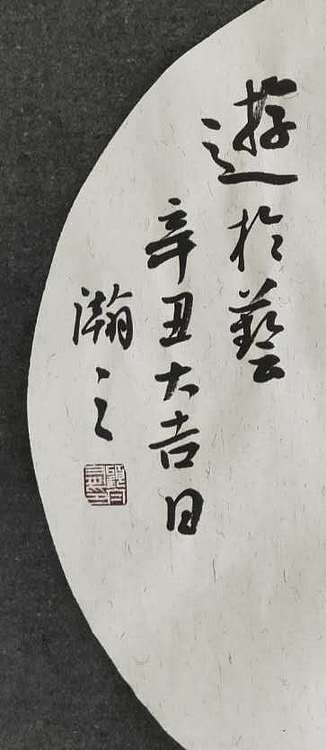 遊於藝
辛丑大吉日
瀚之